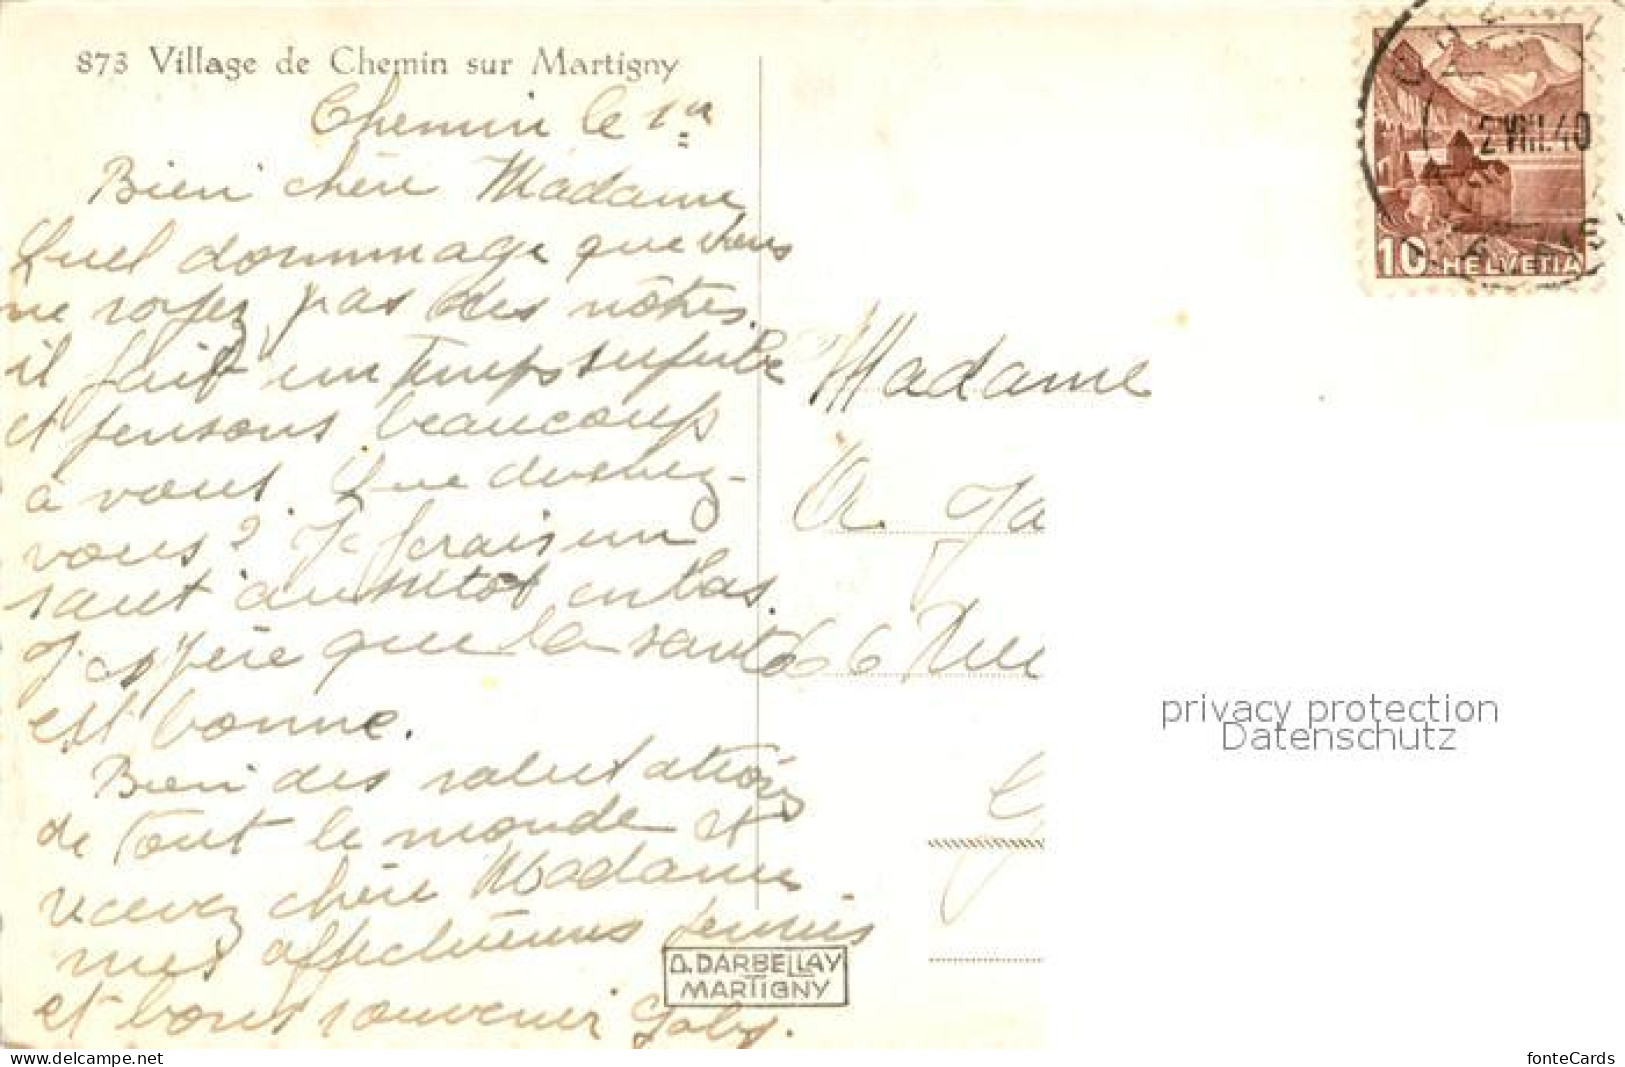 873 Village de Chemin sur Martigny
Chemin le 1er
Bien chère Madame
Quel dommage que vous
ne soyez pas des nôtres.
il fait un temps superbe
et pensons beaucoup
à vous. Que devenez-
vous? Je ferais un
saut aussitôt en bas.
J'espère que la santé
est bonne.
Bien des salutations
de tout le monde et
recevez chère Madame
mes affectueuses pensées
et bons souvenir Gaby.
D. DARBELLAY
MARTIGNY
2 VIII. 40
10 HELVETIA
Madame
66 Rue
privacy protection
Datenschutz
www.delcampe.net
fonteCards